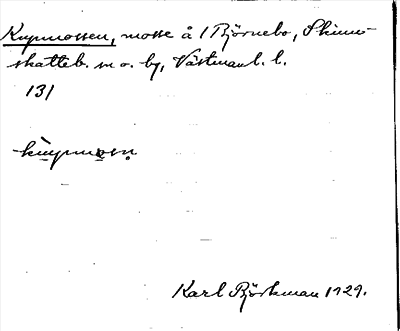 Kupmossen, mosse å 1 Björnebo, Skinn-
skatteb. m o. by, Västmanl. l.
131
Karl Björkman 1929.